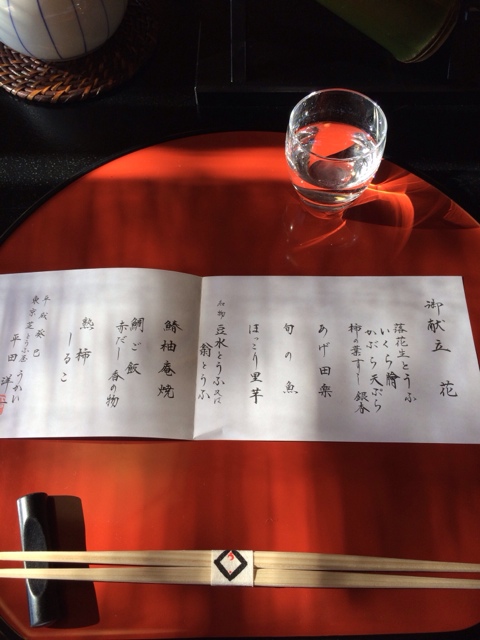 御献立 花
落花生とうふ
いくら膾
かぶら天ぷら
柿の葉すし 銀杏
あげ田楽
旬の魚
ほっこり里芋
名物 豆水とうふ 又は
翁とうふ
鰆柚庵焼
鯛ご飯
赤だし 香の物
熟柿
しるこ
平成癸巳
東京芝とうふ屋うかい
平田